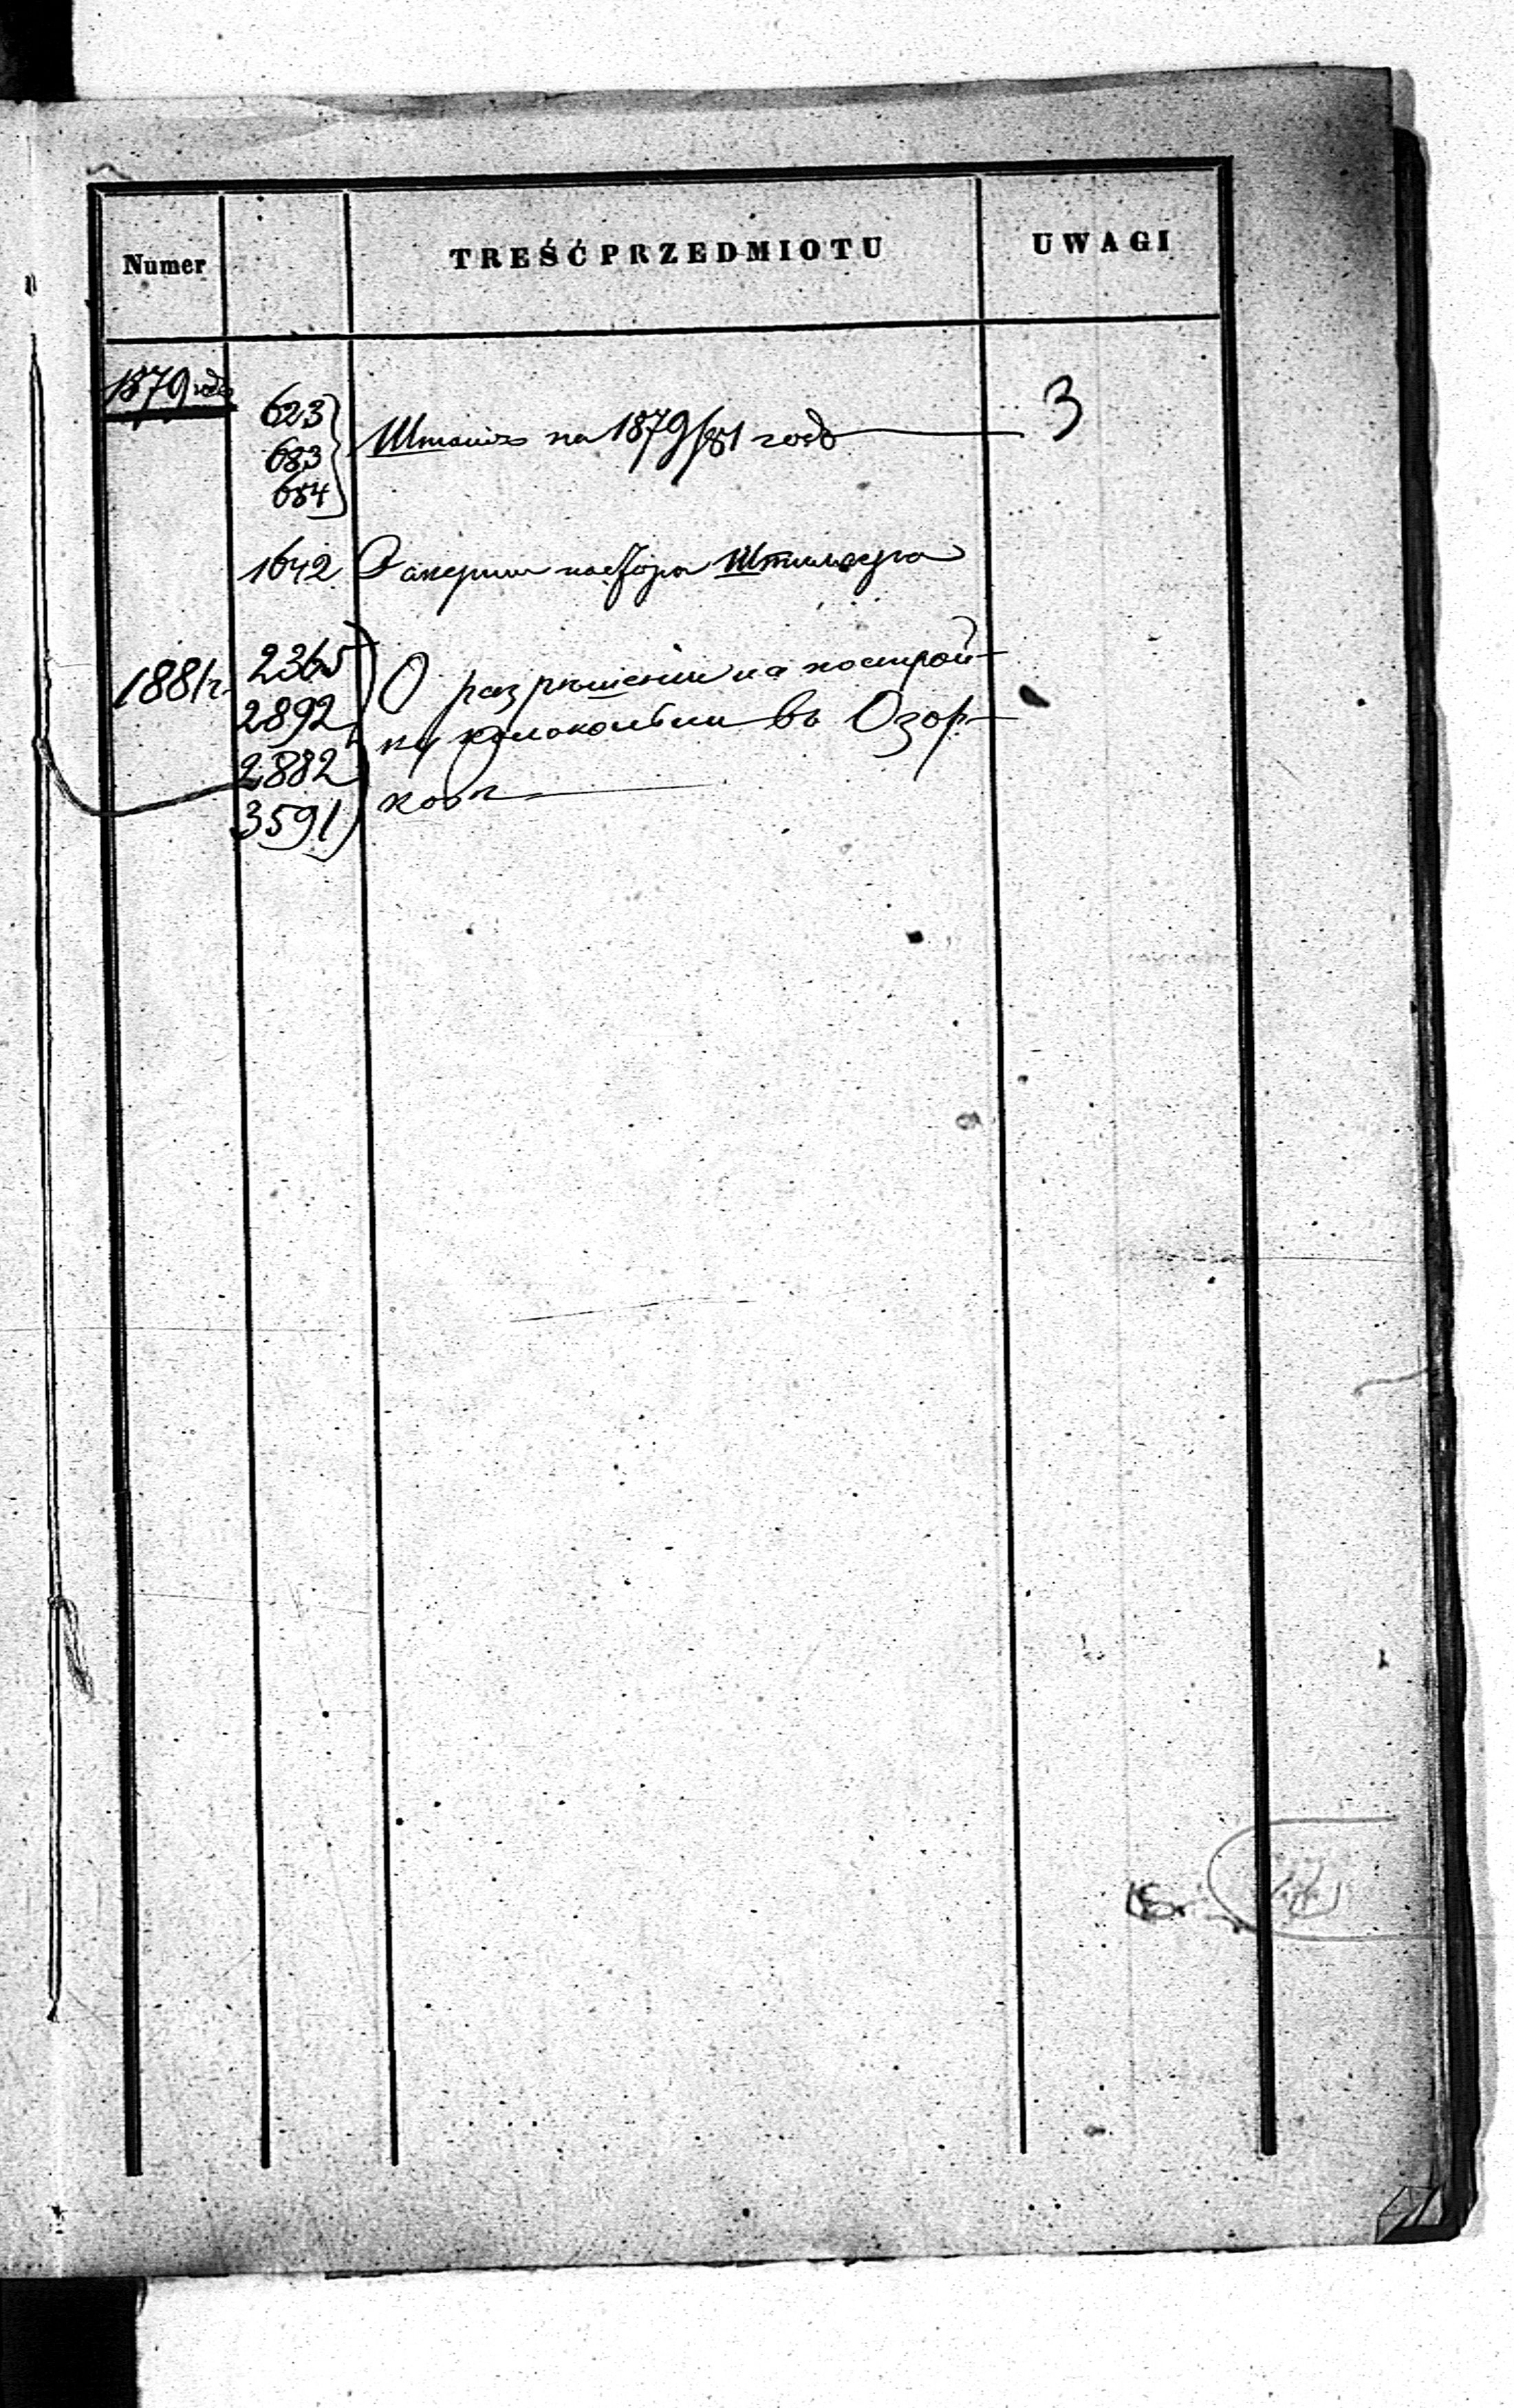 Numer TREŚĆ PRZEDMIOTU UWAGI
1879 года
623
683 Штатъ на 1879/81 годъ 3
684
1642 О смерти пастора
2365
1881 г. О разрѣшеніи на построй-
2892 ку колокольни въ Озор-
2882 ковѣ
3591